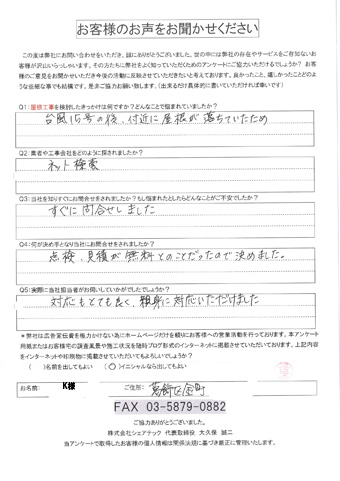 お客様のお声をお聞かせください
この度は弊社にお問い合わせをいただき、誠にありがとうございました。世の中には弊社の存在やサービスをご存知ないお
客様が沢山いらっしゃいます。その方たちに弊社をよく知っていただくためのアンケートにご協力いただけるでしょうか？ お客様
のご意見をお聞かせいただき今後の活動に反映させていただきたいと考えております。良かったこと、嬉しかったことどのよ
うな些細な事でも結構です。是非ご協力お願い致します。（出来るだけ具体的に書いていただければ幸いです）
Q1：屋根工事を検討したきっかけは何ですか？どんなことで悩まれていましたか？
台風15号の後、付近に屋根が落ちていたため
Q2：業者や工事会社をどのように探されましたか？
ネット検索
Q3：当社を知りすぐにお問合せをされましたか？もし悩まれたとしたらどんなことがご不安でしたか？
すぐに問合せしました
Q4：何が決め手となり当社にお問合せをされましたか？
点検、見積が無料とのことだったので決めました。
Q5：実際に当社担当者がお伺いしていかがでしたでしょうか？
対応もとても良く、親身に対応いただけました
＊弊社は広告宣伝費を極力かけない為にホームページだけを頼りにお客様への営業活動を行っております。本アンケート
用紙またはお客様宅の調査風景や施工状況を随時ブログ形式のインターネットに掲載させていただいております。上記内容
をインターネットや印刷物に掲載させていただいてもよろしいでしょうか？
（　）名前を出してもよい　（○）イニシャルなら出してもよい
お名前： K様 ご住所： 葛飾区金町
FAX 03-5879-0882
ご協力ありがとうございました。
株式会社シェアテック 代表取締役 大久保 誠二
当アンケートで取得したお客様の個人情報は関係法規に基づき厳正に管理いたします。